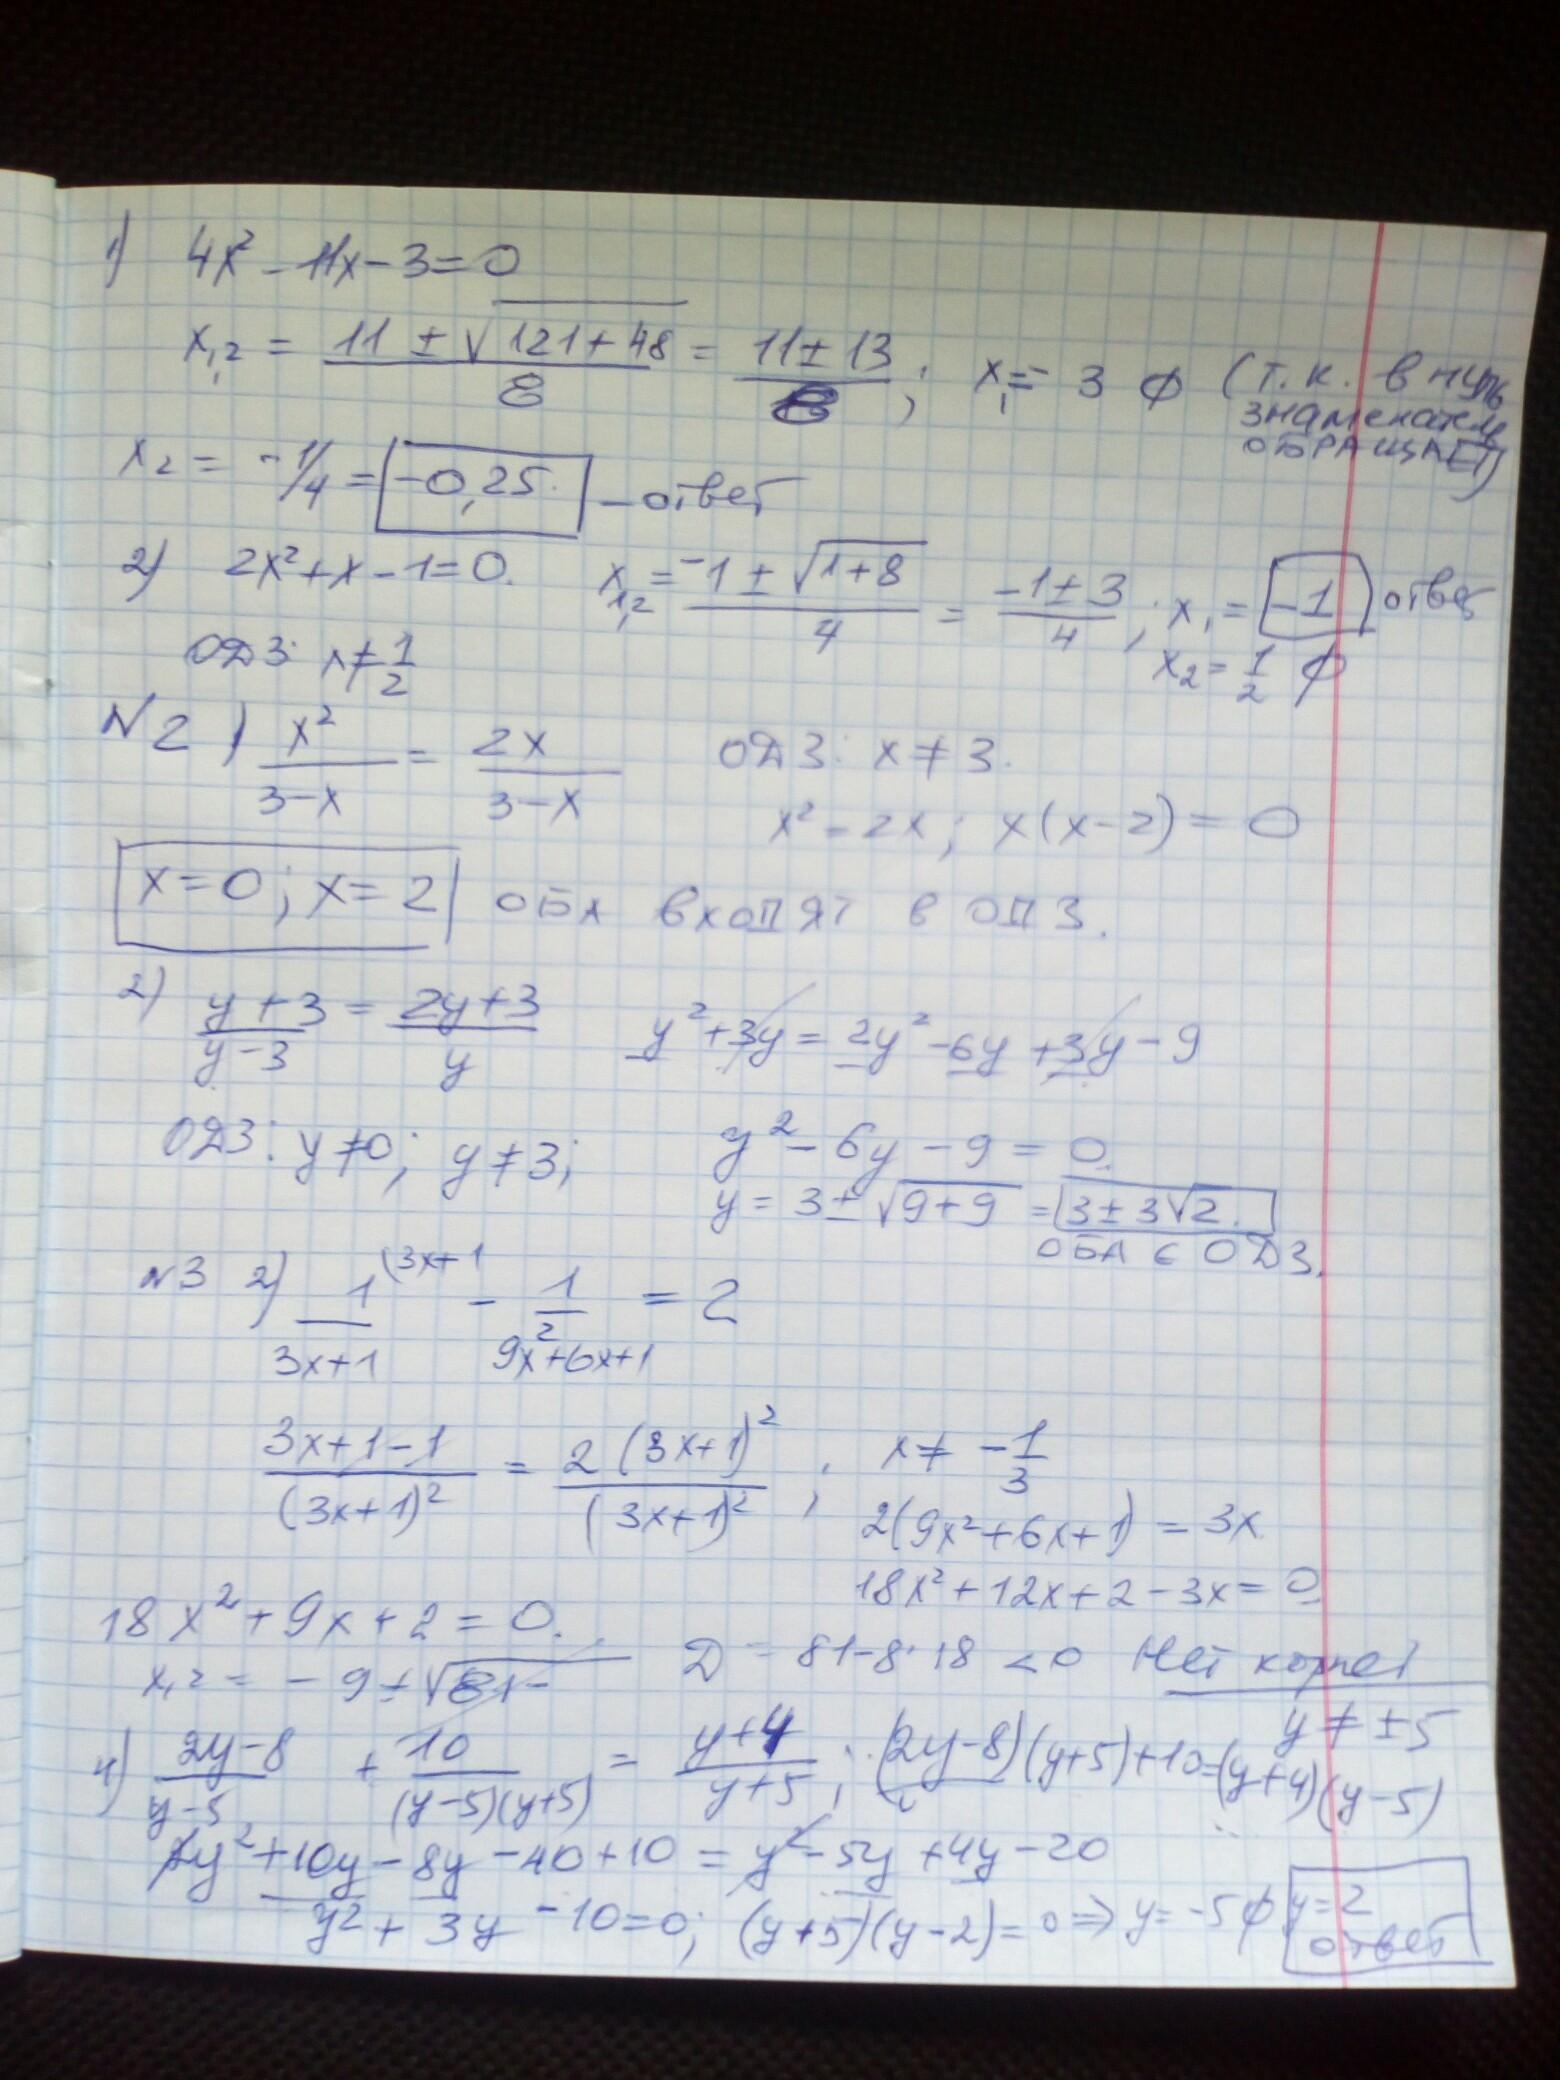 1) 4x² - 11x - 3 = 0
x₁,₂ = (11 ± √(121 + 48))/8 = (11 ± 13)/8 ; x₁ = 3 ∅ (т.к. в нуль
знаменатель
обращает)
x₂ = -1/4 = -0,25. - ответ
2) 2x² + x - 1 = 0. x₁,₂ = (-1 ± √(1 + 8))/4 = (-1 ± 3)/4 ; x₁ = -1 ответ
ОДЗ: x ≠ 1/2 x₂ = 1/2 ∅
N2 1) x²/(3-x) = 2x/(3-x) ОДЗ: x ≠ 3.
x² = 2x ; x(x-2) = 0
x = 0 ; x = 2 оба входят в ОДЗ.
2) (y+3)/(y-3) = (2y+3)/y y² + 3y = 2y² - 6y + 3y - 9
ОДЗ: y ≠ 0; y ≠ 3; y² - 6y - 9 = 0.
y = 3 ± √(9+9) = 3 ± 3√2.
ОБА ∈ ОДЗ.
N3 2) 1/(3x+1) (3x+1 - 1/(9x²+6x+1) = 2
(3x+1-1)/(3x+1)² = 2(3x+1)²/(3x+1)² ; x ≠ -1/3
2(9x²+6x+1) = 3x
18x² + 12x + 2 - 3x = 0.
18x² + 9x + 2 = 0.
x₁,₂ = -9 ± √81- Д = 81-8·18 < 0 Нет корней
y ≠ ±5
4) (2y-8)/(y-5) + 10/((y-5)(y+5)) = (y+4)/(y+5) ; (2y-8)(y+5)+10=(y+4)(y-5)
2y² + 10y - 8y - 40 + 10 = y² - 5y + 4y - 20
y² + 3y - 10 = 0; (y+5)(y-2) = 0 ⇒ y = -5 ∅, y = 2
ответ